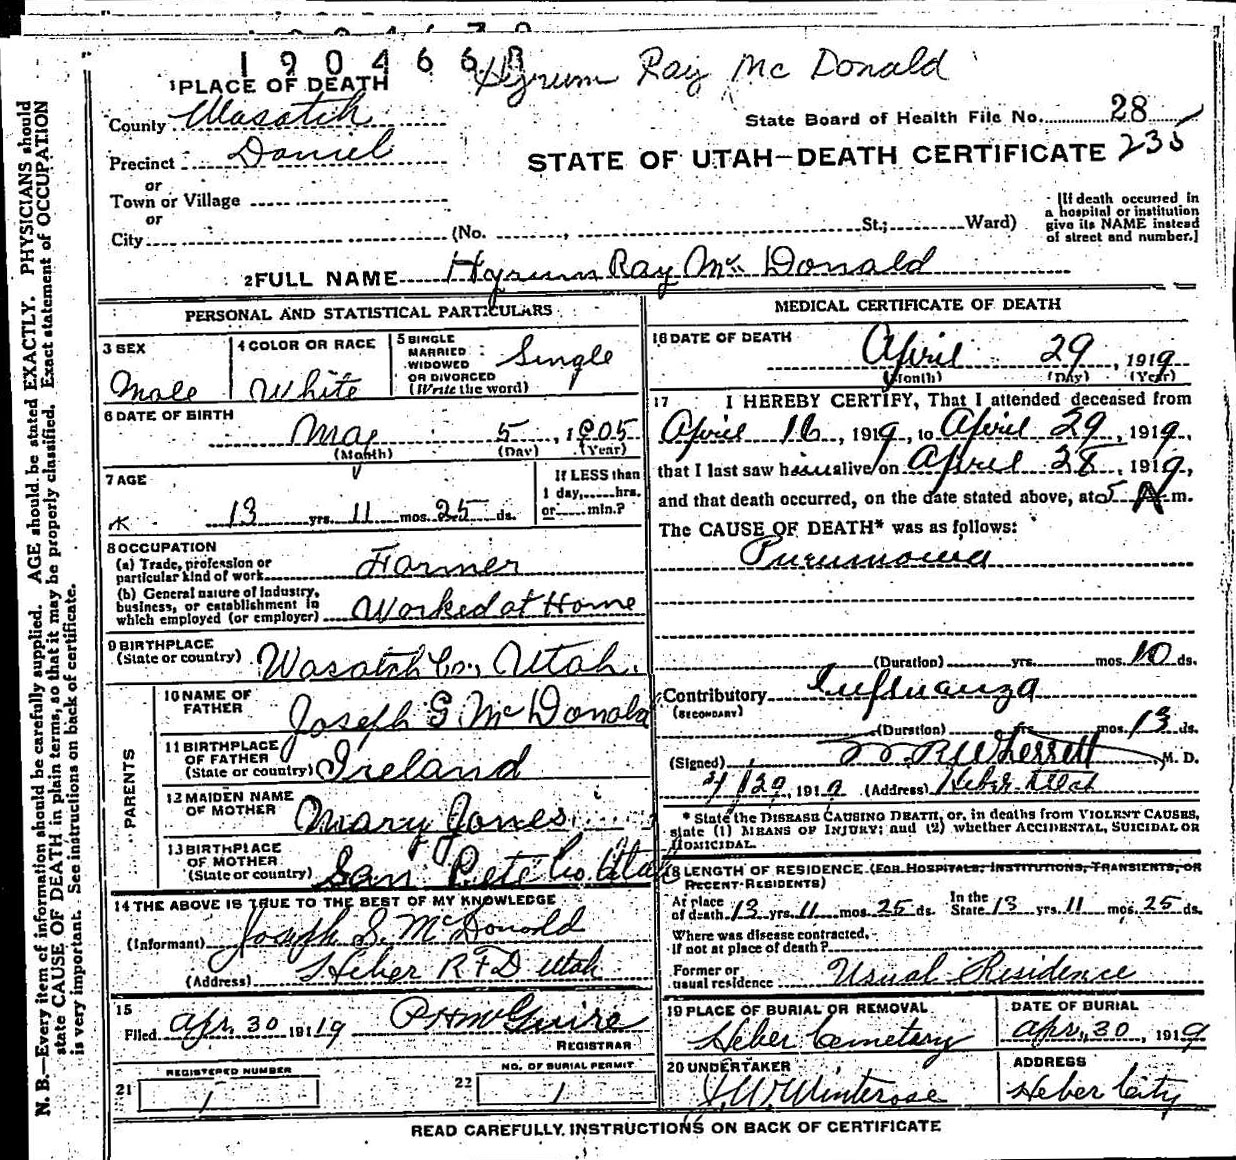 190466B Hyrum Ray Mc Donald
1 PLACE OF DEATH
County Wasatch
State Board of Health File No. 28
Precinct Daniel
STATE OF UTAH—DEATH CERTIFICATE 235
or
Town or Village
or
City (No. , St.; Ward)
[If death occurred in
a hospital or institution
give its NAME instead
of street and number.]
2 FULL NAME Hyrum Ray Mc Donald
PERSONAL AND STATISTICAL PARTICULARS
3 SEX
Male
4 COLOR OR RACE
White
5 SINGLE
MARRIED
WIDOWED
OR DIVORCED
(Write the word)
Single
6 DATE OF BIRTH
May 5, 1905
(Month) (Day) (Year)
7 AGE
13 yrs. 11 mos. 25 ds.
If LESS than
1 day, hrs.
or min.?
8 OCCUPATION
(a) Trade, profession or
particular kind of work Farmer
(b) General nature of Industry,
business, or establishment in
which employed (or employer) Worked at Home
9 BIRTHPLACE
(State or country) Wasatch Co., Utah.
PARENTS
10 NAME OF
FATHER Joseph S McDonald
11 BIRTHPLACE
OF FATHER
(State or country) Ireland
12 MAIDEN NAME
OF MOTHER Mary Jones
13 BIRTHPLACE
OF MOTHER
(State or country) San Pete Co. Utah
14 THE ABOVE IS TRUE TO THE BEST OF MY KNOWLEDGE
(Informant) Joseph S. McDonald
(Address) Heber R F D Utah
15
Filed Apr. 30 19119 P H McGuire
REGISTRAR
REGISTERED NUMBER
21 1
NO. OF BURIAL PERMIT
22 1
MEDICAL CERTIFICATE OF DEATH
16 DATE OF DEATH
April 29, 1919
(Month) (Day) (Year)
17 I HEREBY CERTIFY, That I attended deceased from
April 16, 1919, to April 29, 1919,
that I last saw him alive on April 28, 1919,
and that death occurred, on the date stated above, at 5 A m.
The CAUSE OF DEATH* was as follows:
Pneumonia
(Duration) yrs. mos. 10 ds.
Contributory Influenza
(SECONDARY)
(Duration) yrs. mos. 13 ds.
(Signed) W R Wherritt M. D.
4/29, 1919 (Address) Heber Utah
* State the DISEASE CAUSING DEATH, or, in deaths from VIOLENT CAUSES,
state (1) MEANS OF INJURY; and (2) whether ACCIDENTAL, SUICIDAL OR
HOMICIDAL.
18 LENGTH OF RESIDENCE (FOR HOSPITALS, INSTITUTIONS, TRANSIENTS, OR
RECENT RESIDENTS)
At place
of death 13 yrs. 11 mos. 25 ds.
In the
State 13 yrs. 11 mos. 25 ds.
Where was disease contracted,
If not at place of death?
Former or
usual residence Usual Residence
19 PLACE OF BURIAL OR REMOVAL
Heber Cemetary
DATE OF BURIAL
Apr. 30, 1919
20 UNDERTAKER
J. W. Winterose
ADDRESS
Heber City
READ CAREFULLY INSTRUCTIONS ON BACK OF CERTIFICATE
N. B.—Every item of information should be carefully supplied. AGE should be stated EXACTLY. PHYSICIANS should
state CAUSE OF DEATH in plain terms, so that it may be properly classified. Exact statement of OCCUPATION
is very important. See instructions on back of certificate.